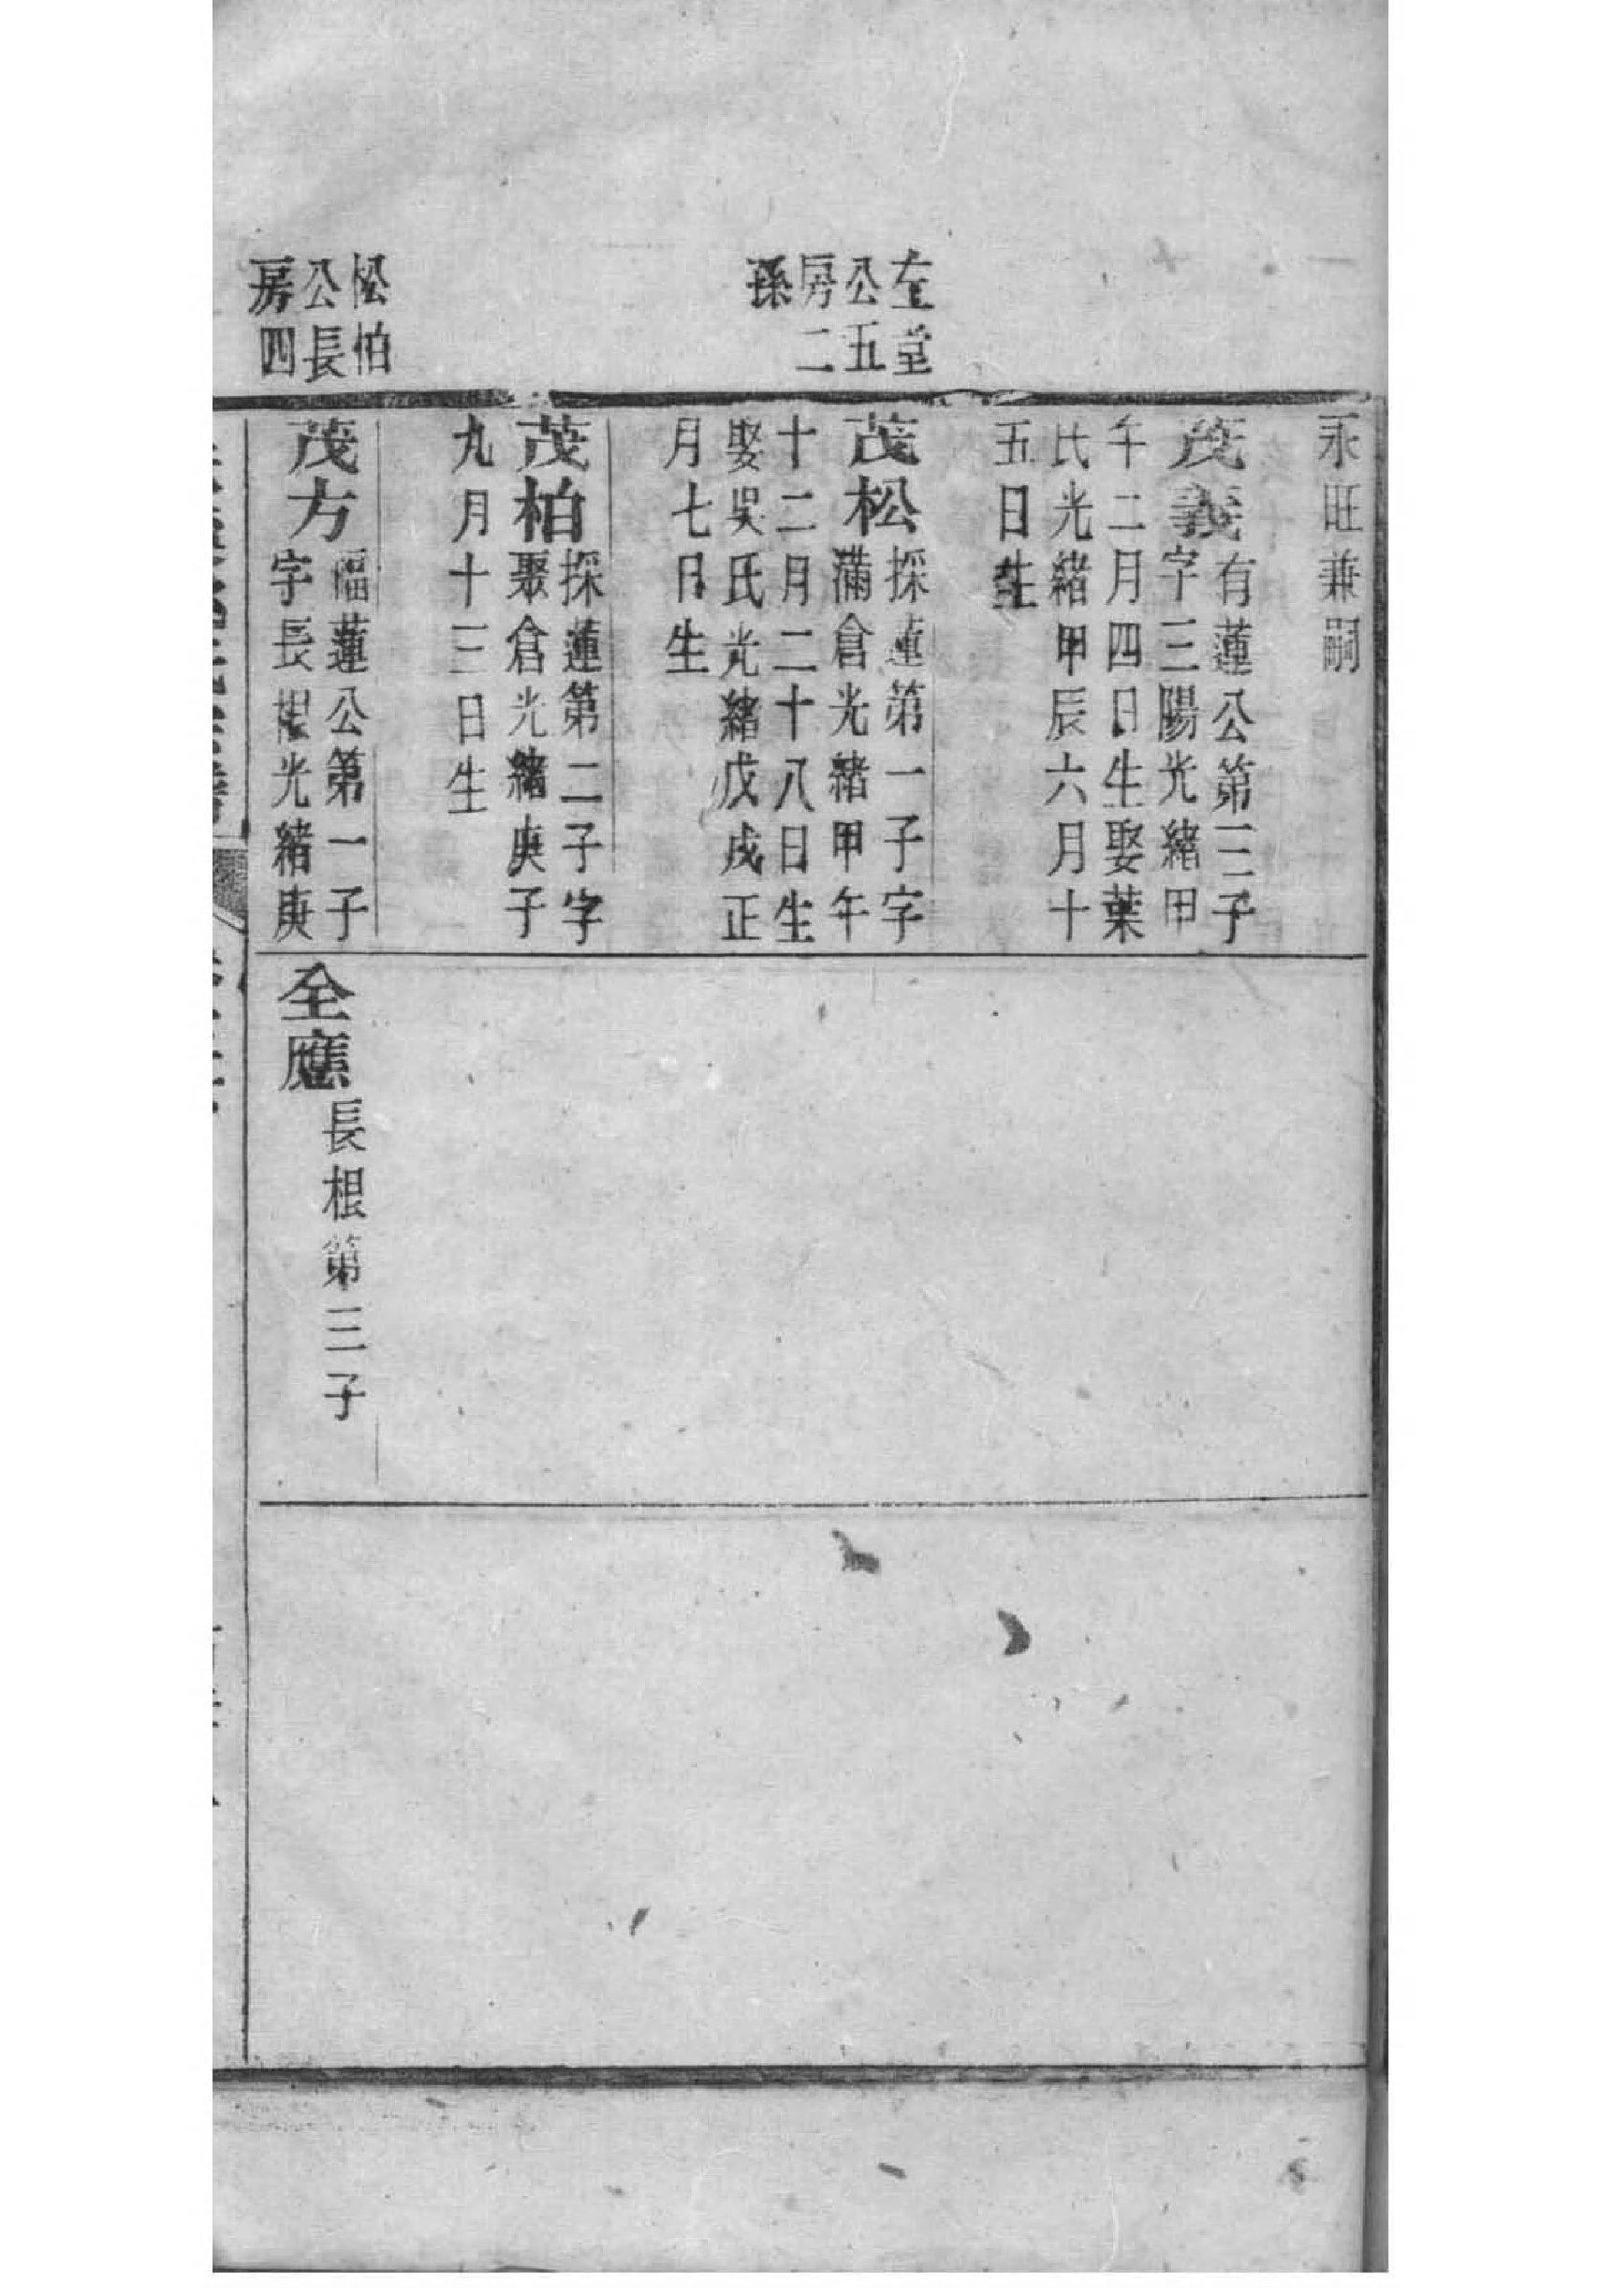 左堂
公五
房二
孫
松柏
公長
房四
永旺兼嗣
茂義
有蓮公第三子
字三陽光緒甲
午二月四日生娶葉
氏光緒甲辰六月十
五日生
茂松
採蓮第一子字
滿倉光緒甲午
十二月二十八日生
娶吳氏光緒戊戌正
月七日生
茂柏
採蓮第二子字
聚倉光緒庚子
九月十三日生
茂方
福蓮公第一子
字長根光緒庚
全應
長根第三子